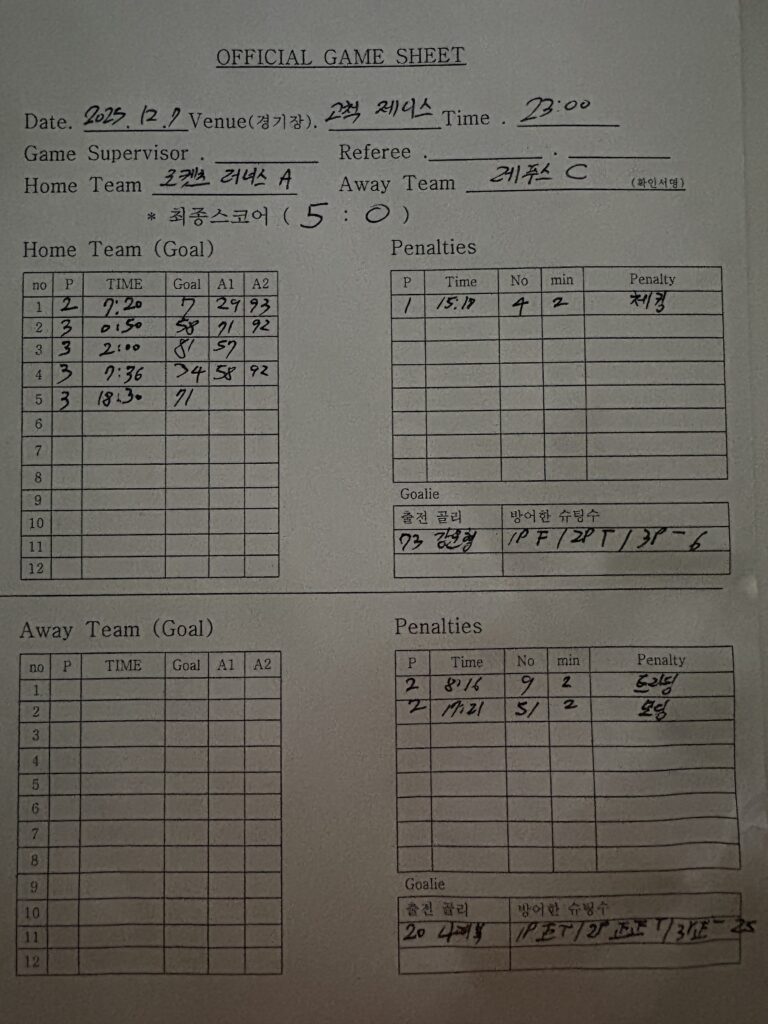 OFFICIAL GAME SHEET
Date. 2025. 12. 7 Venue(경기장). 고척 제니스 Time . 23:00
Game Supervisor . Referee . .
Home Team 로켓츠 러너스 A Away Team 레푸스 C (확인서명)
* 최종스코어 ( 5 : 0 )
Home Team (Goal)
no P TIME Goal A1 A2
1 2 7:20 7 29 93
2 3 0:50 58 71 92
3 3 2:00 81 57
4 3 7:36 34 58 92
5 3 18:30 71
6
7
8
9
10
11
12
Penalties
P Time No min Penalty
1 15:18 4 2 체킹
Goalie
출전 골리 방어한 슈팅수
73 1P F / 2P T / 3P - 6
Away Team (Goal)
no P TIME Goal A1 A2
1
2
3
4
5
6
7
8
9
10
11
12
Penalties
P Time No min Penalty
2 8:16 9 2 트리핑
2 17:21 51 2 보딩
Goalie
출전 골리 방어한 슈팅수
20 1P 正 T / 2P 正正 T / 3P 正 - 25